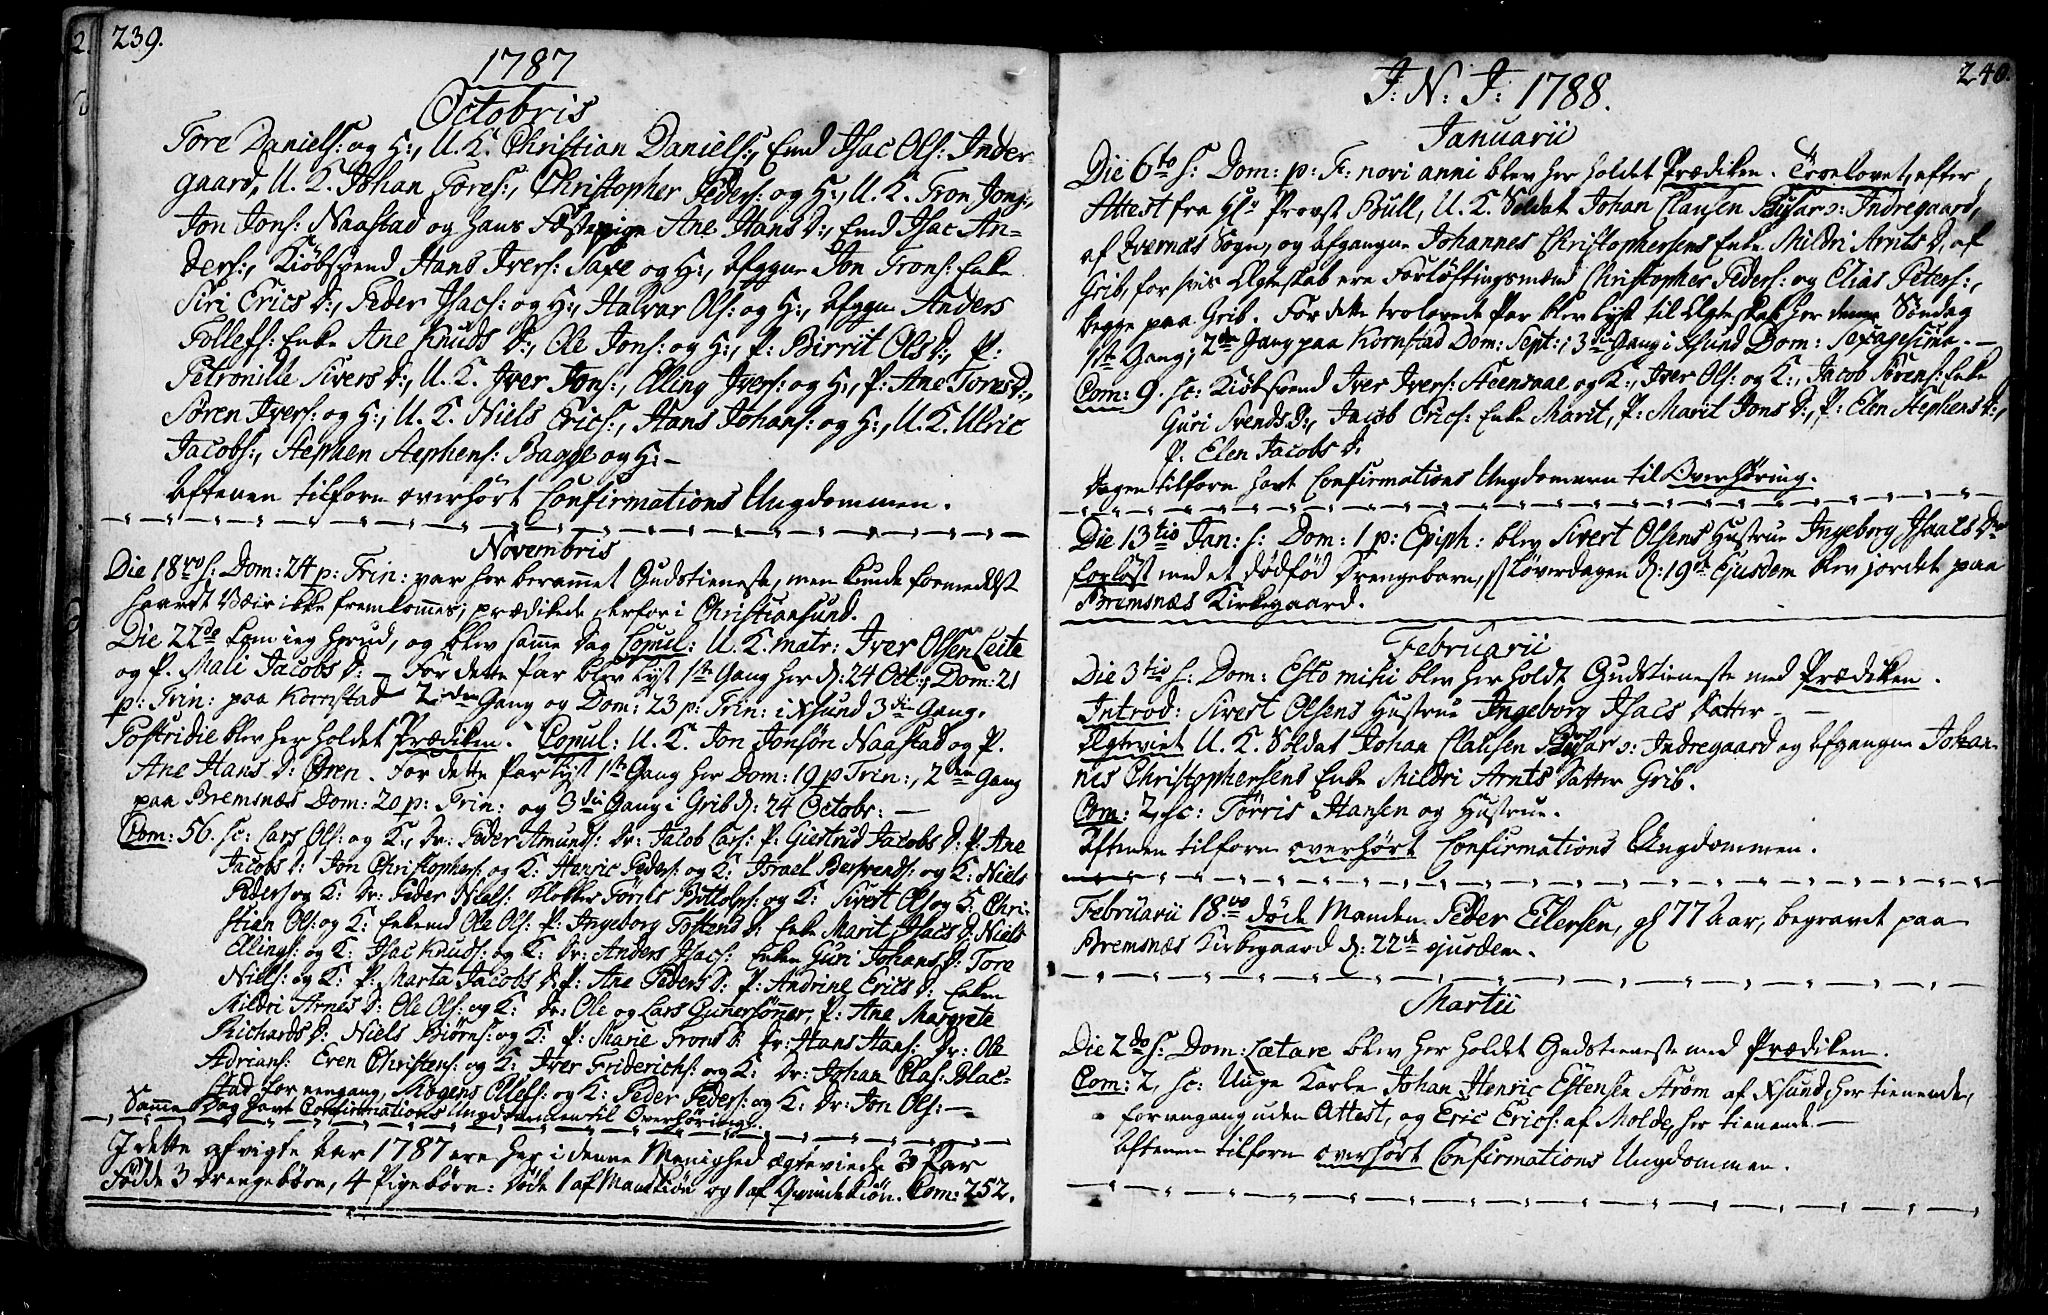 239.
1787
Octobris
Tore Daniels: og H:, U. K. Christian Daniels:, Enmd Isac Ols: Inder-
gaard, U. K. Johan Tores:, Christopher Peders: og H:, U. K. Tron Jons:,
Jon Jons: Naastad og hans Fæstepige Ane Hans D:, Enmd Isac An-
ders:, Kiøbsvend Hans Ivers: Saxe og H:, Afggne Jon Trons: Enke
Siri Erics D:, Peder Isacs: og H:, Halvar Ols: og H:, Afggne Anders
Tollefs: Enke Ane Knuds D:, Ole Jons: og H:, P: Birrit Ols D:, P:
Petronille Sivers D:, U. K. Iver Jons:, Elling Ivers: og H:, P: Ane Tores D:,
Søren Ivers: og H:, U. K. Niels Erics:, Hans Johans: og H:, U. K. Ulric
Jacobs:, Stephen Stephens: Bagge og H: –
Aftenen tilforn overhørt Confirmations Ungdommen.
Novembris
Die 18vo s: Dom: 24 p: Trin: var her berammet Gudstieneste, men kunde formedelst
haardt Veir ikke fremkomes; prædikede derfor i Christiansund.
Die 22de kom ieg hrud, og blev samme Dag Copul: U. K. matr: Iver Olsen Leite
og P. Mali Jacobs D: – For dette Par blev lyst 1ste Gang her d: 24 Oct:, Dom: 21
p: Trin: paa Kornstad 2den Gang og Dom: 23 p: Trin: i Xsund 3die Gang.
Postridie blev her holdet Prædiken. Copul: U. K. Jon Jonsøn Naastad og P.
Ane Hans D: Ören. For dette Par lyst 1ste Gang her Dom: 19 p Trin:, 2den Gang
paa Bremsnæs Dom: 20 p: Trin: og 3die Gang i Grib d: 24 Octobr: –
Com: 56. sc: Lars Ols: og K:, Dr: Peder Amunds: Dr: Jacob Lars: P: Giertrud Jacobs D: P: Ane
Jacobs D: Jon Christophers: og K: Henric Peders: og K: Israel Bersvends: og K: Niels
Peders og K: Dr: Peder Niels: Klokker Tørris Bottolvs: og K: Sivert Ols og K: Chri-
stian Ols: og K: Enkemd Ole Ols: P: Ingeborg Tostens D: Enke Marit Isacs D: Niels
Ellings: og K: Isac Knuds: og K: Dr: Anders Isacs: Enken Guri Johans D: Tore
Niels: og K: P: Marta Jacobs D: P: Ane Peders D: P: Andrine Erics D: Enken
Mildri Arnts D: Ole Ols: og K: Dr: Ole og Lars Gunersønner, P: Ane Margrete
Richards D: Niels Biørns: og K: P: Marie Trons D: Dr: Hans Hans: Dr: Ole
Adrians: Even Christens: og K: Iver Friderichs: og K: Dr: Johan Clas: Blac-
stad for eengang, Mogens Ellefs: og K: Peder Peders: og K: Dr: Jon Ols: –
Samme Dag havt Confirmations Ungdommen til Overhøring.
I dette afvigte Aar 1787 ere her i denne Menighed ægteviede 3 Par
Fødde 3 Drengebørn, 4 Pigebørn: Døde 1 af Mandkiøn og 1 af Qvindekiøn. Com: 252.
240.
J: N: J: 1788.
Januarii
Die 6to s: Dom: p: F: novi anni blev her holdet Prædiken. Troelovet, efter
Attest fra Hr Provst Bull, U. K. Soldat Johan Clausen Indregaard,
af Qvernæs Sogn, og Afgangne Johannes Christophersens Enke Mildri Arnts D: af
Grib, for hvis Ægteskab ere Forløftningsmænd Christopher Peders: og Elias Peters:,
begge paa Grib. For dette trolovede Par blev lyst til Ægteskab her denne Søndag
1ste Gang; 2den Gang paa Kornstad Dom: Sept:, 3die Gang i Xsund Dom: Sexagesima. –
Com: 9. sc: Kiøbsvend Iver Ivers: Steensaae og K:, Iver Ols: og K:, Jacob Sörens: Enke
Guri Svends D:, Jacob Erics: Enke Marit, P: Marit Jons D:, P: Elen Stephens D:,
P. Elen Jacobs D.
Dagen tilforn havt Confirmations Ungdommen til Overhøring.
Die 13tio Jan: s: Dom: 1 p: Epiph: blev Sivert Olsens Hustrue Ingeborg Isaacs Dr
forløst med et dødfød Drengebarn, Løverdagen d: 19de Ejusdem blev jordet paa
Bremsnæs Kirkegaard.
Februarii
Die 3tio s: Dom: Esto mihi blev her holdt Gudstieneste med Prædiken.
Introd: Sivert Olsens Hustrue Ingeborg Isacs Datter –
Ægteviet U. K. Soldat Johan Clausen Indregaard og Afgangne Johan-
nes Christophersens Enke Mildri Arnts Datter Grib.
Com: 2, sc: Tørris Hansen og Hustrue.
Aftenen tilforn overhørt Confirmations Ungdommen.
Februarii 18vo døde Manden Peder Eilersen, 77 Aar, begravet paa
Bremsnæs Kirkegaard d: 22de ejusdem.
Martii
Die 2do s: Dom: Lætare blev her holdet Gudstieneste med Prædiken.
Com: 2, sc: Unge Karle Johan Henric Estensen Strøm af Xsund, her tienende,
for eengang, uden Attest, og Eric Erics: af Molde, her tienende. –
Aftenen tilforn overhørt Confirmations Ungdommen.